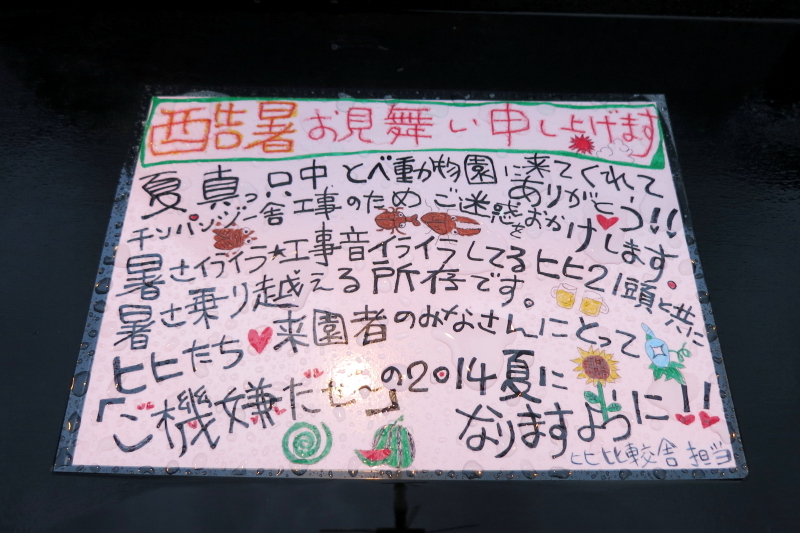 酷暑お見舞い申し上げます
夏真っ只中とべ動物園に来てくれてありがとう!!
チンパンジー舎工事のためご迷惑をおかけします
暑さイライラ★工事音イライラしてるヒヒ21頭と共に
暑さ乗り越える所存です。
ヒヒたち♥来園者のみなさんにとって
「ご機嫌だぜ〜」の2014夏に
なりますように!!
ヒヒ比較舎担当